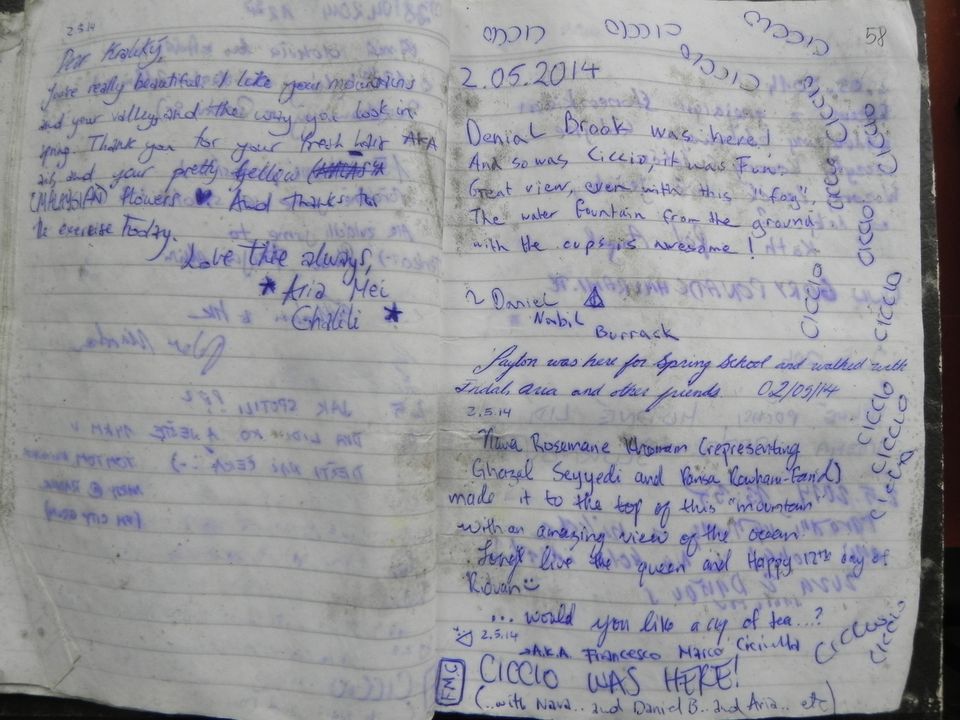 2.5.14
Dear Kralický,
you're really beautiful. I like your mountains
and your valleys and the way you look in
spring. Thank you for your fresh AKA
air, and your pretty yellow
(MALAYSIAN) flowers ♥ And thanks for
the exercise today.
Love thee always,
* Aria Mei
Ghalili *
58
CICCIO CICCIO CICCIO
CICCIO
2.05.2014
Denial Brook was here!
And so was Ciccio, it was Fun.
Great view, even with this "fog",
The water fountain from the ground
with the cups is awesome!
2 Daniel
Nabil
Burrack
Payton was here for Spring School and walked with
Tridal, Aria and other friends. 02/05/14
2.5.14
Nava Rosemane Khomam (representing
Ghazal Seyyedi and Parsa Rowhani-Farid)
made it to the top of this "mountain"
with an amazing view of the ocean.
Long live the queen and Happy 12th day of
Ridvan ☺
... would you like a cup of tea...?
2.5.14
→ A.K.A. Francesco Marco Ciciriello
F.M.C
CICCIO WAS HERE!
(..with Nava.. and Daniel B.. and Aria.. etc)
CICCIO
CICCIO
CICCIO
CICCIO
CICCIO
CICCIO
CICCIO
CICCIO
CICCIO
CICCIO
CICCIO
CICCIO